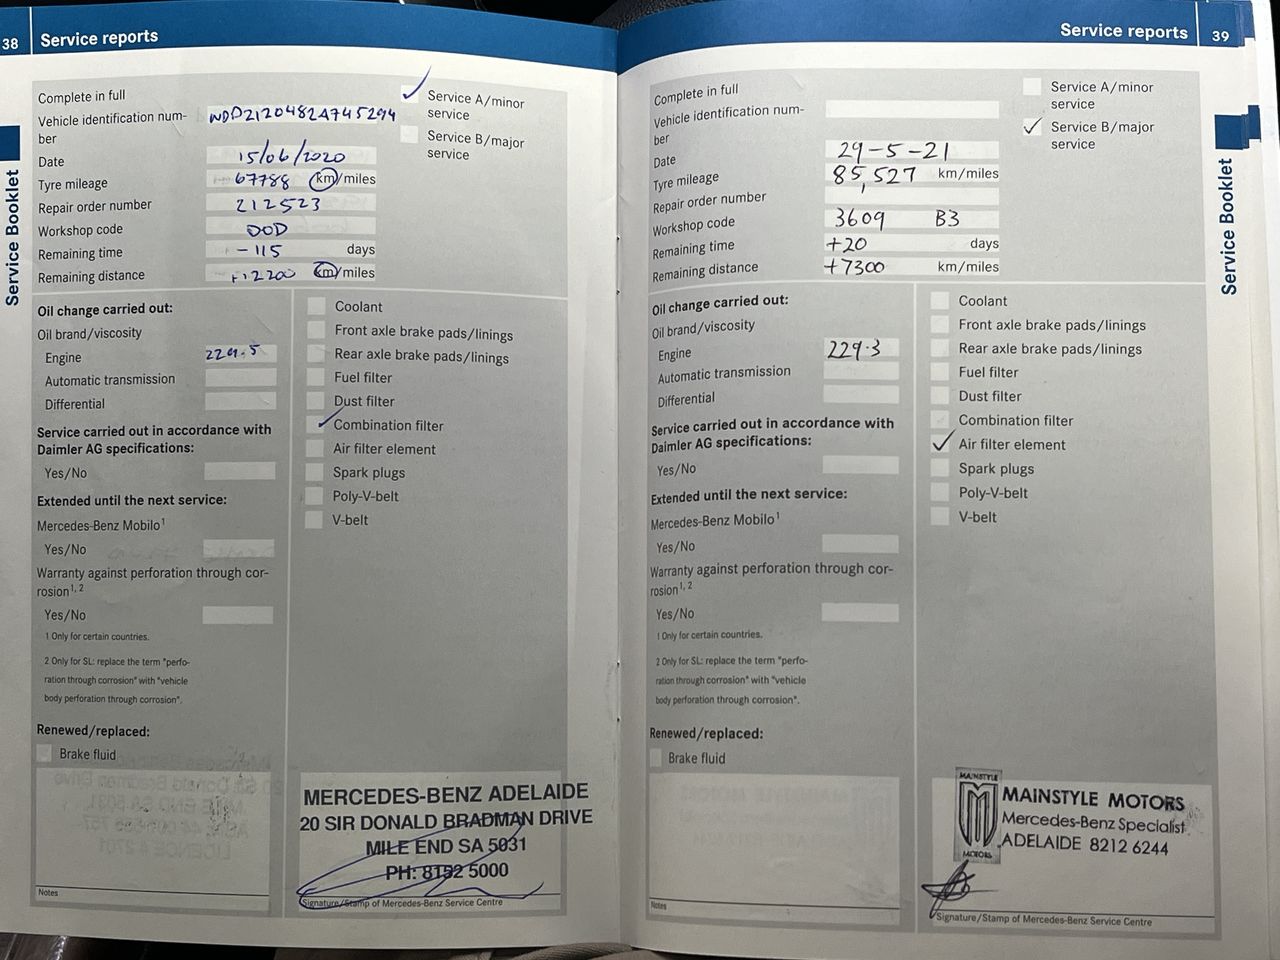 38
Service reports
Service Booklet
Complete in full
Vehicle identification num-
ber
WDD2120482A745294
Date
15/06/2020
Tyre mileage
67788 km/miles
Repair order number
212523
Workshop code
DOD
Remaining time
-115 days
Remaining distance
+12200 km/miles
✓ Service A/minor
service
Service B/major
service
Oil change carried out:
Oil brand/viscosity
Engine
229.5
Automatic transmission
Differential
Service carried out in accordance with
Daimler AG specifications:
Yes/No
Extended until the next service:
Mercedes-Benz Mobilo¹
Yes/No
Warranty against perforation through cor-
rosion¹,²
Yes/No
1 Only for certain countries.
2 Only for SL: replace the term "perfo-
ration through corrosion" with "vehicle
body perforation through corrosion".
Renewed/replaced:
Brake fluid
Notes
Coolant
Front axle brake pads/linings
Rear axle brake pads/linings
Fuel filter
Dust filter
✓ Combination filter
Air filter element
Spark plugs
Poly-V-belt
V-belt
MERCEDES-BENZ ADELAIDE
20 SIR DONALD BRADMAN DRIVE
MILE END SA 5031
PH: 8152 5000
Signature/Stamp of Mercedes-Benz Service Centre
Service reports
39
Service Booklet
Complete in full
Vehicle identification num-
ber
Date
29-5-21
Tyre mileage
85,527 km/miles
Repair order number
Workshop code
3609 B3
Remaining time
+20 days
Remaining distance
+7300 km/miles
Service A/minor
service
✓ Service B/major
service
Oil change carried out:
Oil brand/viscosity
Engine
229.3
Automatic transmission
Differential
Service carried out in accordance with
Daimler AG specifications:
Yes/No
Extended until the next service:
Mercedes-Benz Mobilo¹
Yes/No
Warranty against perforation through cor-
rosion¹,²
Yes/No
1 Only for certain countries.
2 Only for SL: replace the term "perfo-
ration through corrosion" with "vehicle
body perforation through corrosion".
Renewed/replaced:
Brake fluid
Notes
Coolant
Front axle brake pads/linings
Rear axle brake pads/linings
Fuel filter
Dust filter
Combination filter
✓ Air filter element
Spark plugs
Poly-V-belt
V-belt
MAINSTYLE
MOTORS
MAINSTYLE MOTORS
Mercedes-Benz Specialist
ADELAIDE 8212 6244
Signature/Stamp of Mercedes-Benz Service Centre